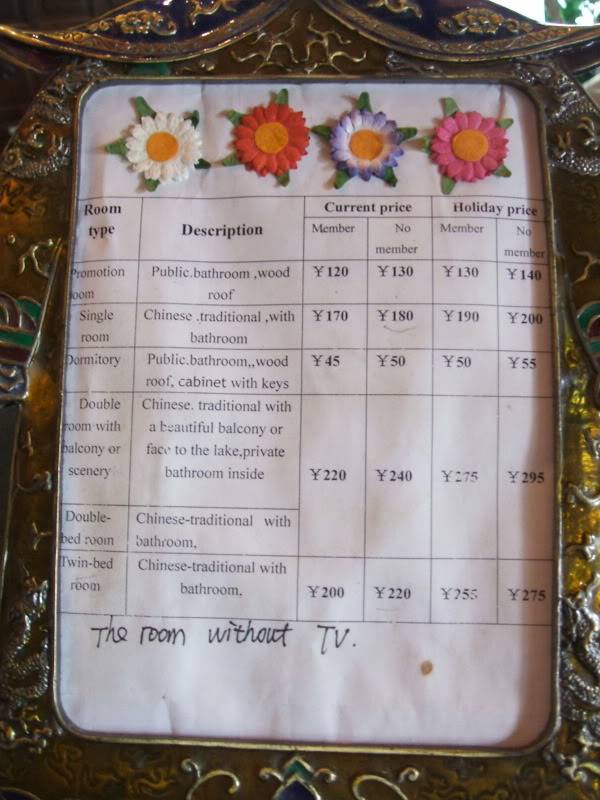 Room type Description Current price Holiday price
Member No member Member No member
Promotion room Public.bathroom ,wood roof ¥120 ¥130 ¥130 ¥140
Single room Chinese .traditional ,with bathroom ¥170 ¥180 ¥190 ¥200
Dormitory Public.bathroom,,wood roof, cabinet with keys ¥45 ¥50 ¥50 ¥55
Double room with balcony or scenery Chinese. traditional with a beautiful balcony or face to the lake,private bathroom inside ¥220 ¥240 ¥275 ¥295
Double-bed room Chinese-traditional with bathroom,
Twin-bed room Chinese-traditional with bathroom. ¥200 ¥220 ¥255 ¥275
The room without TV.